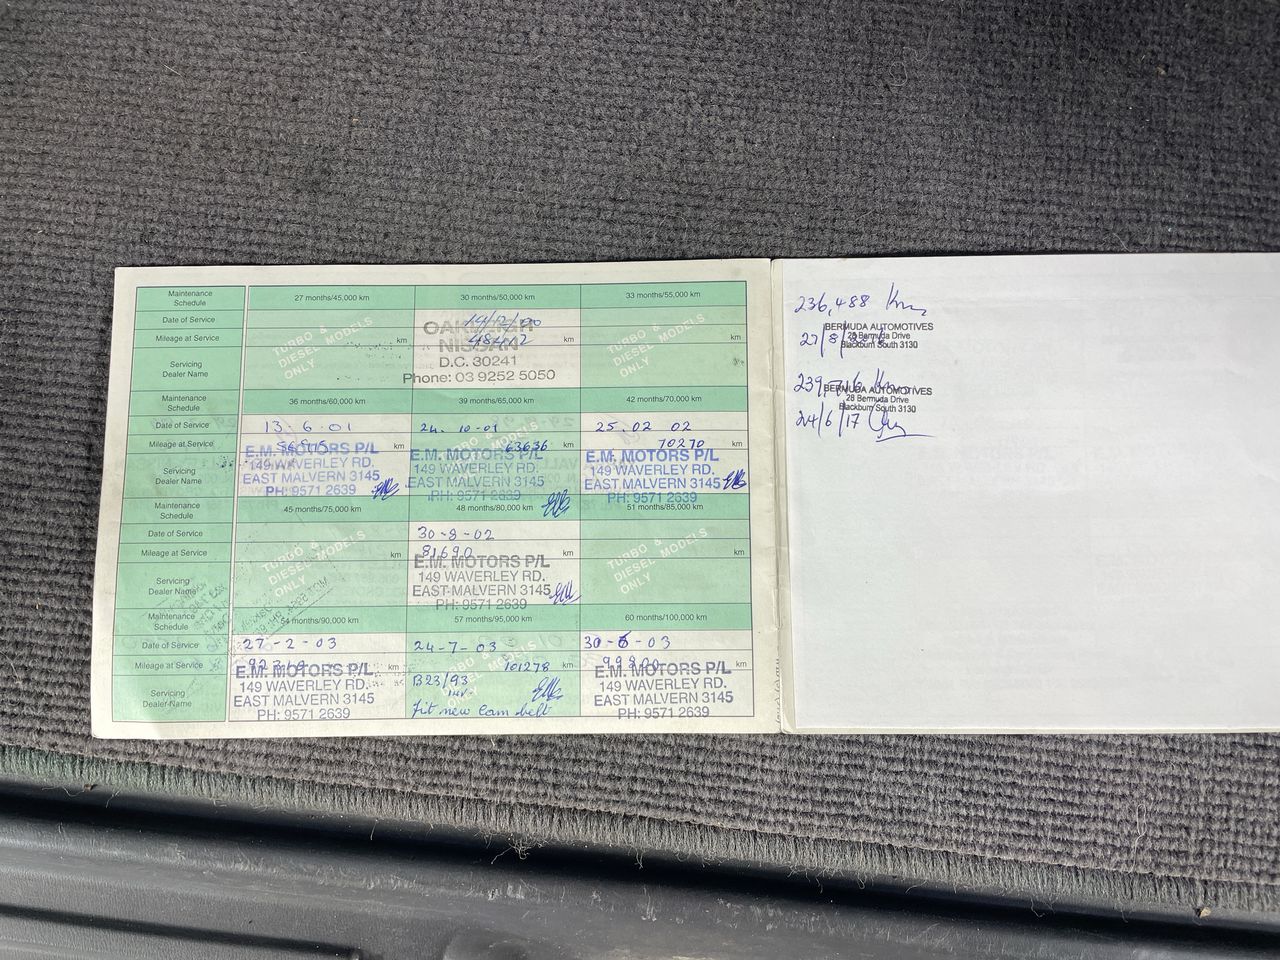 Maintenance Schedule
27 months/45,000 km
30 months/50,000 km
33 months/55,000 km
Date of Service
TURBO & DIESEL MODELS ONLY
14/12/00
TURBO & DIESEL MODELS ONLY
Mileage at Service
km
km
km
OAKLEIGH
NISSAN
D.C. 30241
Phone: 03 9252 5050
Servicing Dealer Name
Maintenance Schedule
36 months/60,000 km
39 months/65,000 km
42 months/70,000 km
Date of Service
13-6-01
24-10-01
25.02 02
Mileage at Service
km
63636 km
70270 km
Servicing Dealer Name
E.M. MOTORS P/L
149 WAVERLEY RD.
EAST MALVERN 3145
PH: 9571 2639
E.M. MOTORS P/L
149 WAVERLEY RD.
EAST MALVERN 3145
PH: 9571 2639
E.M. MOTORS P/L
149 WAVERLEY RD.
EAST MALVERN 3145
PH: 9571 2639
Maintenance Schedule
45 months/75,000 km
48 months/80,000 km
51 months/85,000 km
Date of Service
TURBO & DIESEL MODELS ONLY
30-8-02
TURBO & DIESEL MODELS ONLY
Mileage at Service
km
81690 km
km
Servicing Dealer Name
E.M. MOTORS P/L
149 WAVERLEY RD.
EAST MALVERN 3145
PH: 9571 2639
Maintenance Schedule
54 months/90,000 km
57 months/95,000 km
60 months/100,000 km
Date of Service
27-2-03
24-7-03
Mileage at Service
101278 km
km
Servicing Dealer Name
E.M. MOTORS P/L
149 WAVERLEY RD.
EAST MALVERN 3145
PH: 9571 2639
B23/93
fit new Cam belt
E.M. MOTORS P/L
149 WAVERLEY RD.
EAST MALVERN 3145
PH: 9571 2639
236,488 Km
BERMUDA AUTOMOTIVES
28 Bermuda Drive
Blackburn South 3130
BERMUDA AUTOMOTIVES
28 Bermuda Drive
Blackburn South 3130
24/6/17